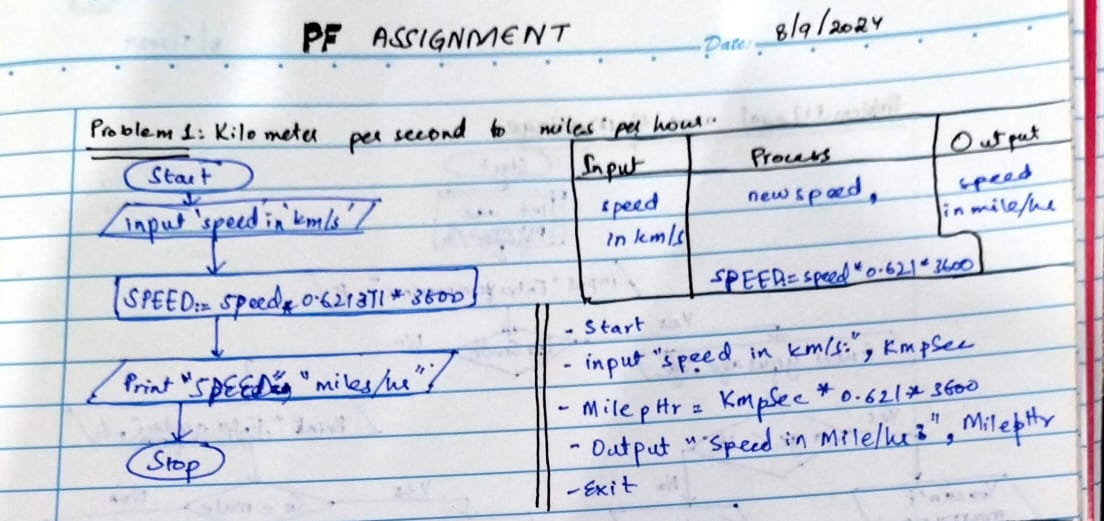 PF ASSIGNMENT
Date: 8/9/2024
Problem 1: Kilo meter per second to miles per hour
Start
input 'speed' in 'km/s'
SPEED:= speed * 0.621371 * 3600
Print "SPEED "miles/hr"
Stop
Input Process Output
speed in km/s
new speed,
SPEED:= speed * 0.621 * 3600
speed in mile/hr
- Start
- input "speed in km/s:", KmpSec
- MilepHr = KmpSec * 0.621 * 3600
- Output "Speed in Mile/hr:", MilepHr
- Exit